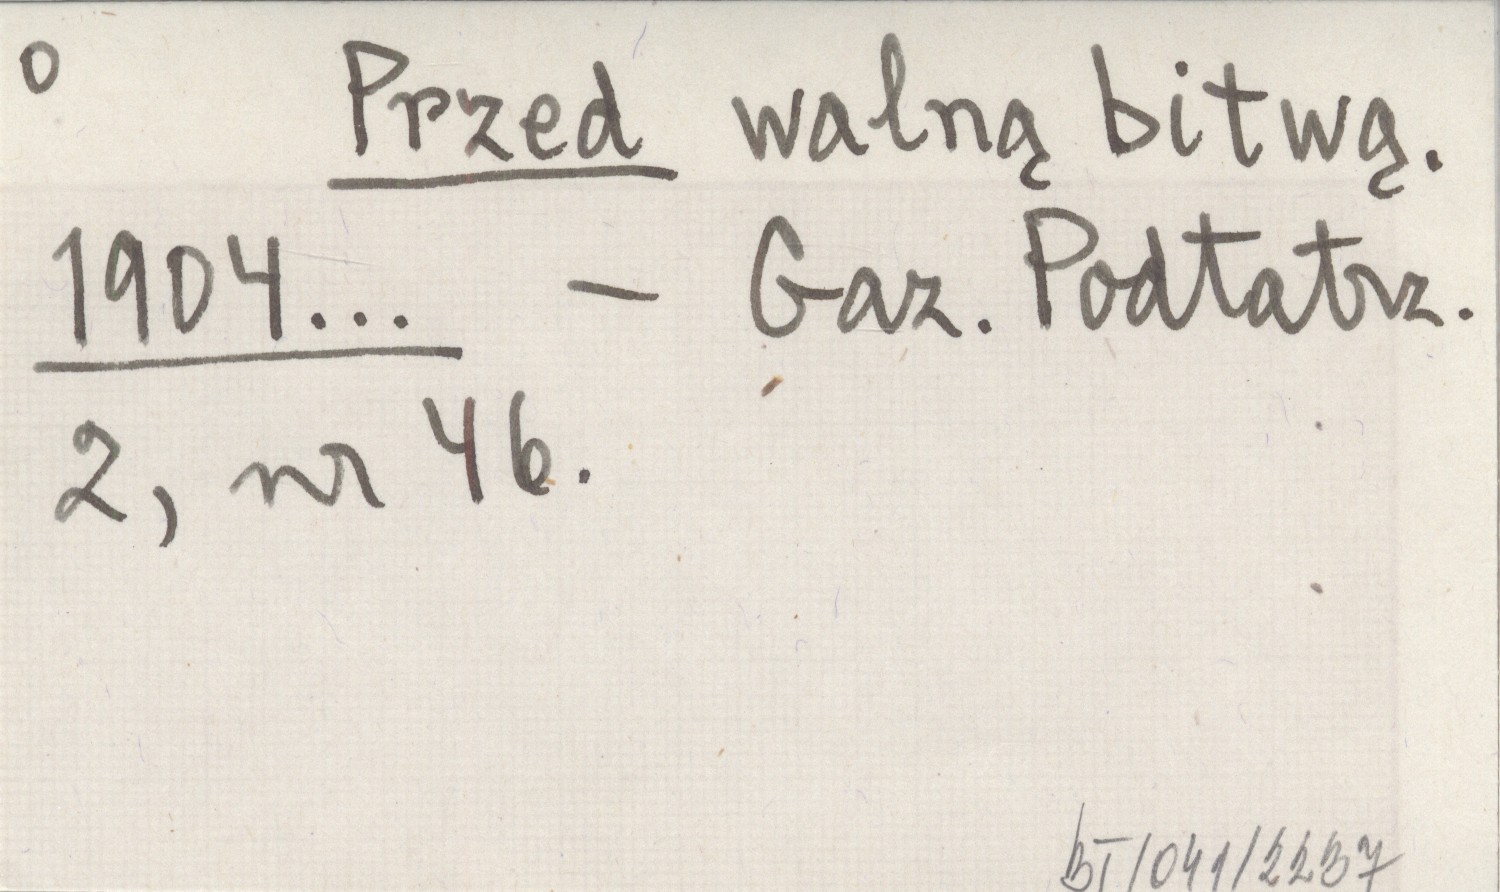 o Przed walną bitwą.
1904... — Gaz. Podtatrz.
2, nr 46.
bT/041/2237